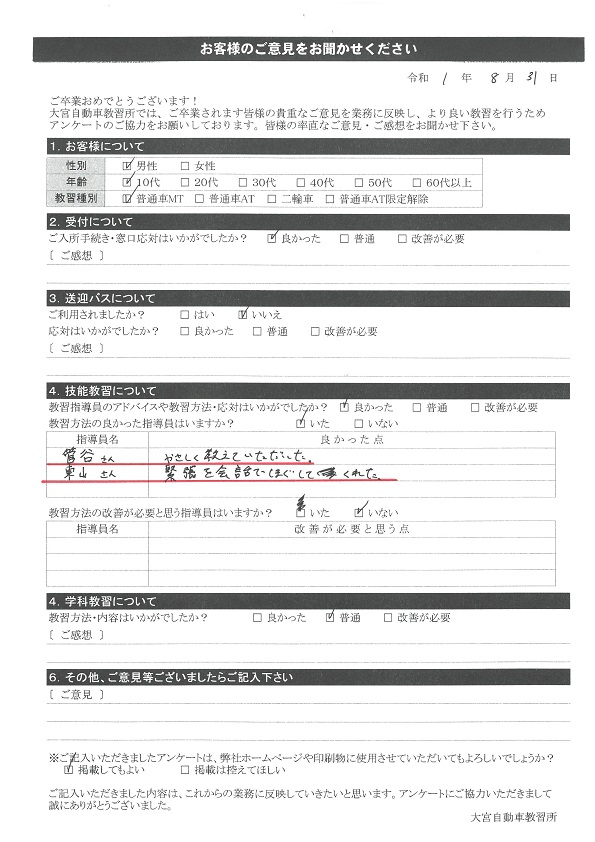 お客様のご意見をお聞かせください
令和 1 年 8 月 31 日
ご卒業おめでとうございます！
大宮自動車教習所では、ご卒業されます皆様の貴重なご意見を業務に反映し、より良い教習を行うため
アンケートのご協力をお願いしております。皆様の率直なご意見・ご感想をお聞かせ下さい。
1. お客様について
性別 ☑ 男性 □ 女性
年齢 ☑ 10代 □ 20代 □ 30代 □ 40代 □ 50代 □ 60代以上
教習種別 ☑ 普通車MT □ 普通車AT □ 二輪車 □ 普通車AT限定解除
2. 受付について
ご入所手続き・窓口応対はいかがでしたか？ ☑ 良かった □ 普通 □ 改善が必要
〔 ご感想 〕
3. 送迎バスについて
ご利用されましたか？ □ はい ☑ いいえ
応対はいかがでしたか？ □ 良かった □ 普通 □ 改善が必要
〔 ご感想 〕
4. 技能教習について
教習指導員のアドバイスや教習方法・応対はいかがでしたか？ ☑ 良かった □ 普通 □ 改善が必要
教習方法の良かった指導員はいますか？ ☑ いた □ いない
指導員名 良かった点
菅谷さん やさしく教えていただいた。
東山さん 緊張を会話でほぐしてくれた。
教習方法の改善が必要と思う指導員はいますか？ □ いた ☑ いない
指導員名 改善が必要と思う点
4. 学科教習について
教習方法・内容はいかがでしたか？ □ 良かった ☑ 普通 □ 改善が必要
〔 ご感想 〕
6. その他、ご意見等ございましたらご記入下さい
〔 ご意見 〕
※ご記入いただきましたアンケートは、弊社ホームページや印刷物に使用させていただいてもよろしいでしょうか？
☑ 掲載してもよい □ 掲載は控えてほしい
ご記入いただきました内容は、これからの業務に反映していきたいと思います。アンケートにご協力いただきまして
誠にありがとうございました。
大宮自動車教習所